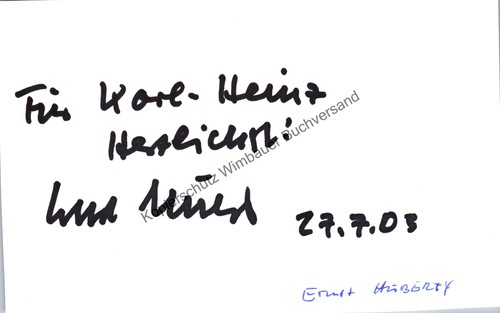 Für Karl-Heinz
Herzlichst!
27.7.03
Ernst HUBERTY
Kopierschutz Wimbauer Buchversand